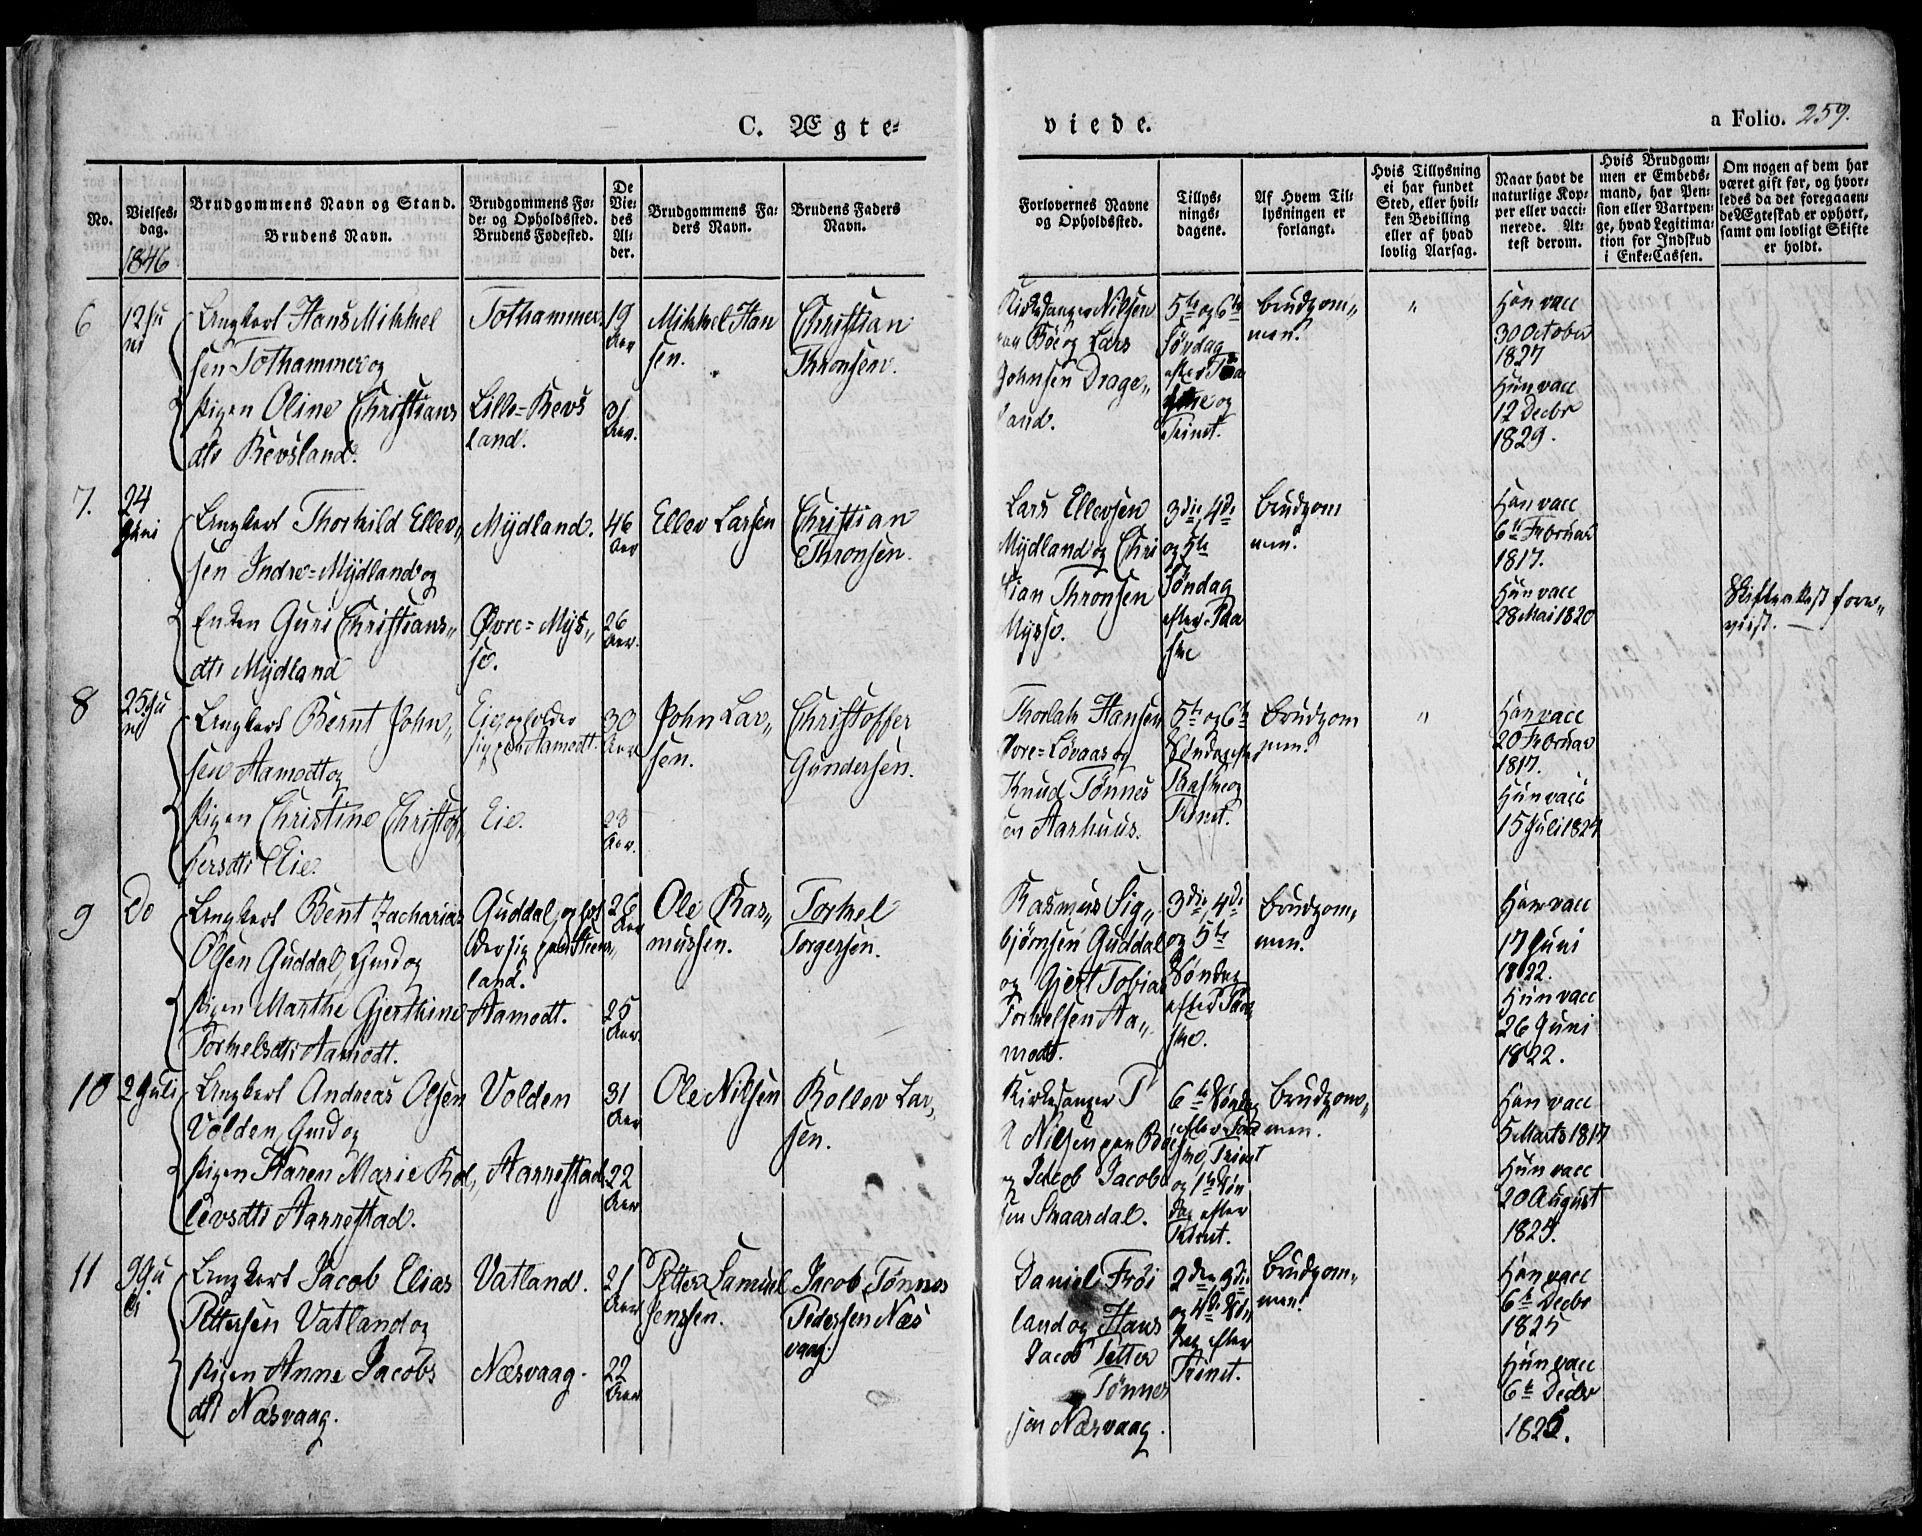 C. Ægte-
viede.
a Folio. 259.
No.
Vielses-
dag.
1846
Brudgommens Navn og Stand.
Brudens Navn.
Brudgommens Fø-
de- og Opholdssted.
Brudens Fødested.
De
Vie-
des
Al-
der.
Brudgommens Fa-
ders Navn.
Brudens Faders
Navn.
Forlovernes Navne
og Opholdssted.
Tillys-
nings-
dagene.
Af Hvem Til-
lysningen er
forlangt.
Hvis Tillysning
ei har fundet
Sted, eller hvil-
ken Bevilling
eller af hvad
lovlig Aarsag.
Naar havt de
naturlige Kop-
per eller vacci-
nerede. At-
test derom.
Hvis Brudgom-
men er Embeds-
mand, har Pen-
sion eller Vartpen-
ge, hvad Legitima-
tion for Indskud
i Enke-Cassen.
Om nogen af dem har
været gift før, og hvor-
ledes da det foregaaen-
de Ægteskab er ophørt,
samt om lovligt Skifte
er holdt.
6
12 Ju
ni
Ungkarl Hans Mikkel
sen Tothammer og
Pigen Oline Christians
dtr Revsland.
Tothammer
Lille=Revs
land.
19
Aar
21
Aar.
Mikkel Han
sen.
Christian
Thronsen.
Kirkesanger Nilsen
paa Bøe og Lars
Johnsen Drage„
land.
5te og 6te
Søndag
efter Paa
ske og
Trinit.
Brudgom„
men.
"
Han vacc
30 October
1827
Hun vacc
12 Decbr
1829.
7.
24
Juni
Ungkarl Thorkild Ellev„
sen Indre=Mydland og
Enken Guri Christians„
dtr Mydland
Mydland.
Øvre=Mys„
se.
46
Aar
26
Aar.
Ellev Larsen
Christian
Thronsen.
Lars Ellevsen
Mydland og Chri
stian Thronsen
Mysse.
3die, 4de
og 5te
Søndag
efter Paa
ske
Brudgom
men.
Han vacc
6te Februar
1817.
Hun vacc
28 Mai 1820
Skifteattest fore„
viist.
8
25 Ju
ni
Ungkarl Bernt John„
sen Aamodt og
Pigen Christine Christof„
fersdtr Eie.
Eie, opholder
sig paa Aamodt.
Eie.
30
Aar
23
Aar.
John Lar„
sen.
Christoffer
Gundersen.
Thorlak Hansen
Øvre=Løvaas og
Knud Tønnes
sen Aarhuus.
5te og 6te
Søndag efter
Paaske og
Trinit.
Brudgom
men.
"
Han vacc
20 Februar
1817.
Hun vacc
15 Juli 1824
9
Do
Ungkarl Bent Zacharias
Olsen Guddal, Gmd og
Pigen Marthe Gjerthine
Tormelsdtr Aamodt.
Guddal, ophol
der sig paa Steens„
land.
Aamodt.
26
Aar
25
Aar
Ole Ras„
mussen.
Tormel
Torgersen.
Rasmus Sig„
bjørnsen Guddal
og Gjert Tobias
Tormelsen Aa„
modt.
3die, 4de
og 5te
Søndag
efter Paa
ske.
Brudgom„
men.
Han vacc
17 Juni
1822.
Hun vacc
26 Juni
1822.
10
2 Juli
Ungkarl Andreas Olsen
Volden, Gmd og
Pigen Karen Marie Kol„
levsdtr Aarrestad.
Volden
Aarrestad
31
Aar
22
Aar
Ole Nilsen
Kollev Lar„
sen.
Kirkesanger T
A Nilsen paa Bøe
og Jacob Jacob
sen Skaardal.
6te Søndag
efter Paa
ske, Trinit
og 1ste Søn
dag efter
Trinit.
Brudgom„
men.
Han vacc
5 Marts 1817
Hun vacc
20 August
1825.
11
9 Ju
li
Ungkarl Jacob Elias
Pettersen Vatland og
Pigen Anne Jacobs
dtr Næsvaag.
Vatland.
Næsvaag.
21
Aar
22
Aar
Petter Samuel
Jenssen.
Jacob Tønnes
Pedersen Næs
vaag.
Daniel Frøi
land og Hans
Jacob Petter
Tønnes
sen Næsvaag.
2den, 3die
og 4de Søn
dag efter
Trinit.
Brudgom„
men.
Han vacc
6te Decbr
1825
Hun vacc
6te Decbr
1825.